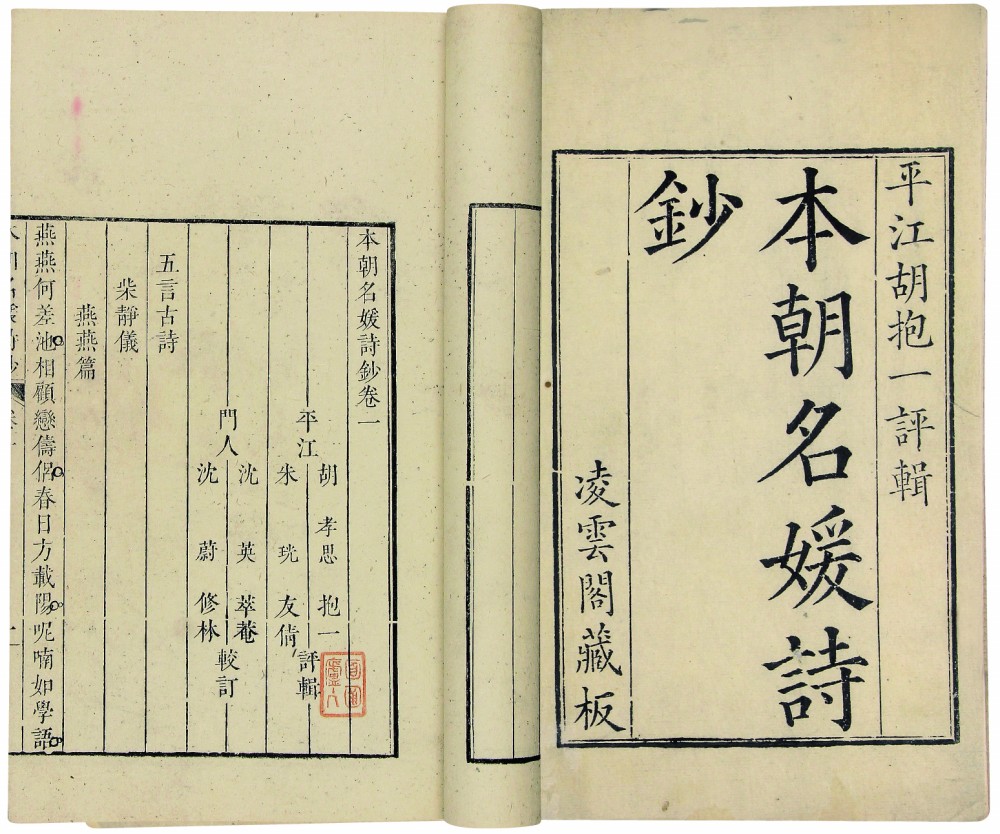 平江胡抱一評輯
本朝名媛詩
鈔
凌雲閣藏板
本朝名媛詩鈔卷一
平江
胡孝思抱一
朱珖友倩
評輯
門人
沈英萃菴
沈蔚修林
較訂
五言古詩
柴靜儀
燕燕篇
燕燕何差池相顧戀儔侶春日方載陽呢喃如學語